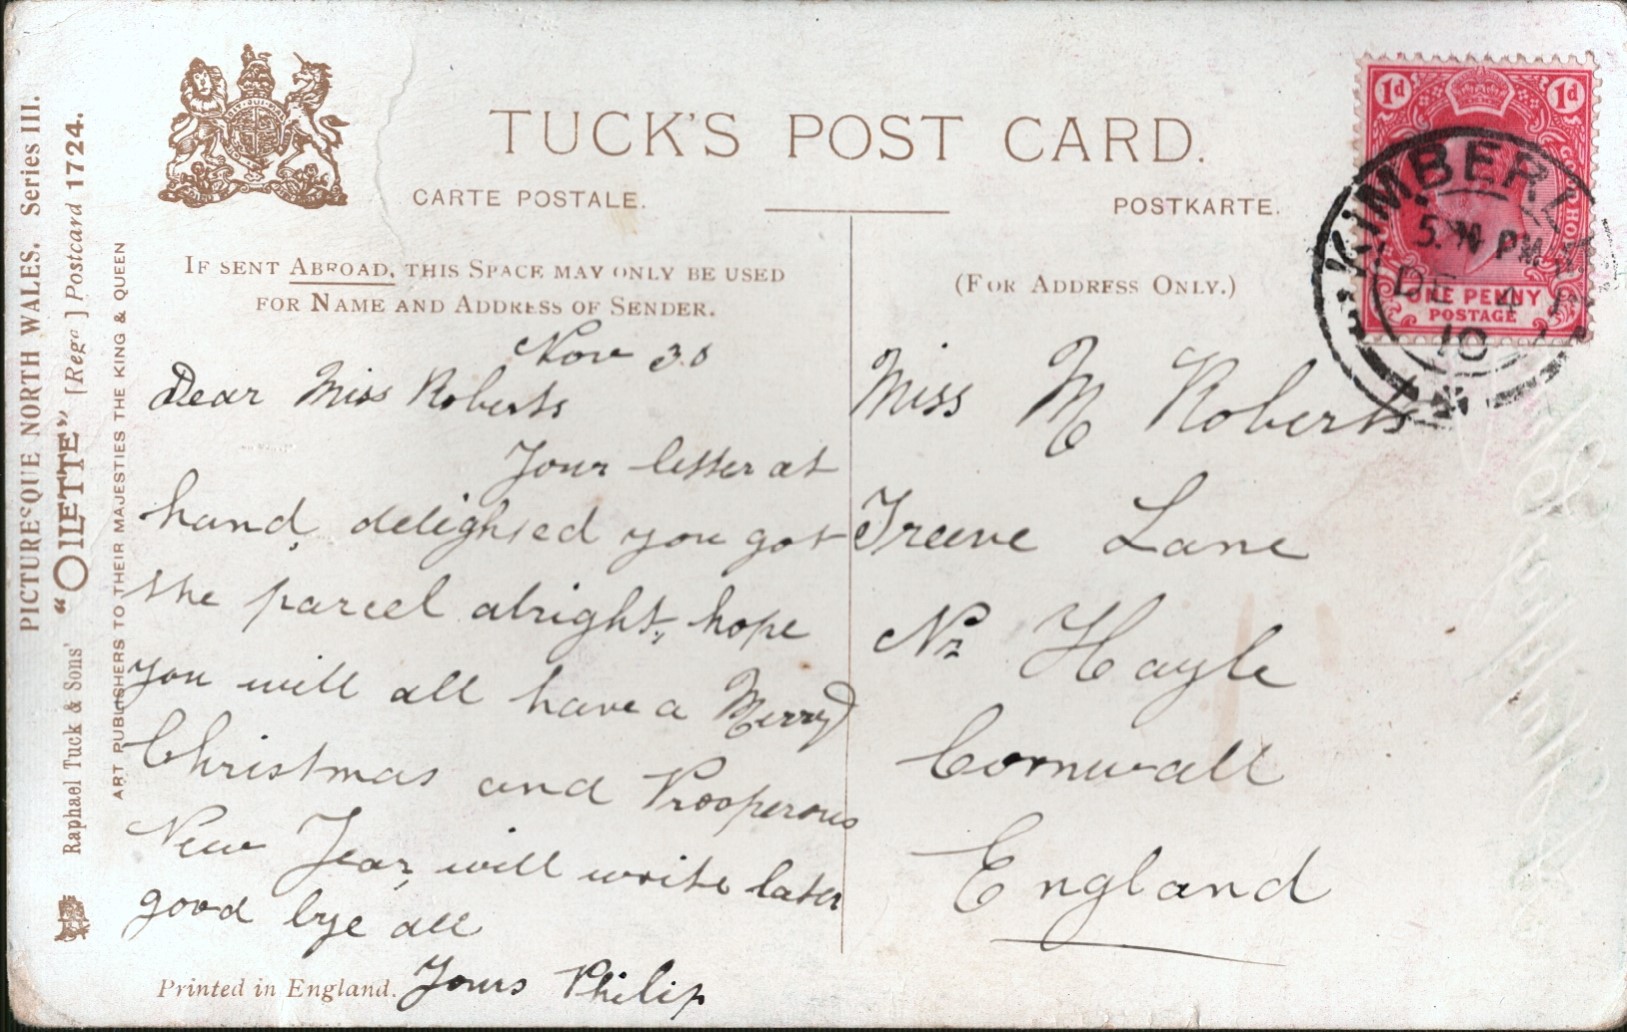 PICTURESQUE NORTH WALES. Series III.
Raphael Tuck & Sons' "OILETTE" [Regd.] Postcard 1724.
ART PUBLISHERS TO THEIR MAJESTIES THE KING & QUEEN
TUCK'S POST CARD.
CARTE POSTALE.
POSTKARTE.
IF SENT ABROAD, THIS SPACE MAY ONLY BE USED
FOR NAME AND ADDRESS OF SENDER.
Nov 30
Dear Miss Roberts
Your letter at
hand, delighted you got
the parcel alright, hope
you will all have a Merry
Christmas and Prosperous
New Year, will write later
good bye all
Yours Philip
Printed in England.
(FOR ADDRESS ONLY.)
Miss M Roberts
Treeve Lane
Nr Hayle
Cornwall
England
1d 1d
GOOD HOPE
ONE PENNY
POSTAGE
KIMBERLEY
PM
DE 4
10